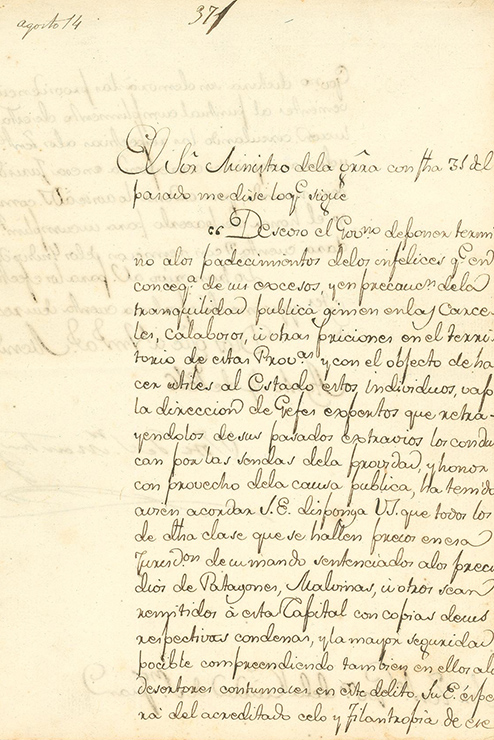 agosto 14
371
El Sor Ministro dela grra con fha 31 del
pasado me dise loqe sigue
"Deseoso el Govno deponer termi
no alos padecimientos delos infelices qe en
conceqa de sus excesos, y en precaucn dela
tranquilidad publica gimen en las Carce
les, calabosos, ú otras priciones en el terri
torio de estas Provas y con el objecto de ha
cer utiles al Estado estos individuos, vajo
la direccion de Gefes expertos que retra-
yendolos de sus pasados extravios los condu
can por las sendas dela providad, y honor
con provecho dela causa publica, ha tenido
avien acordar S.E. disponga VS. que todos los
de dha clase que se hallen presos en esa
Jurisdon de su mando sentenciados alos presi
dios de Patagones, Malvinas, ú otros sean
remitidos à esta Capital con copias desus
respectivas condenas, y la mayor seguridad
pocible compreendiendo tambien en ellos alos
desertores contumases en este delito. Su E. espe
ra del acreditado celo y filantropia de ese